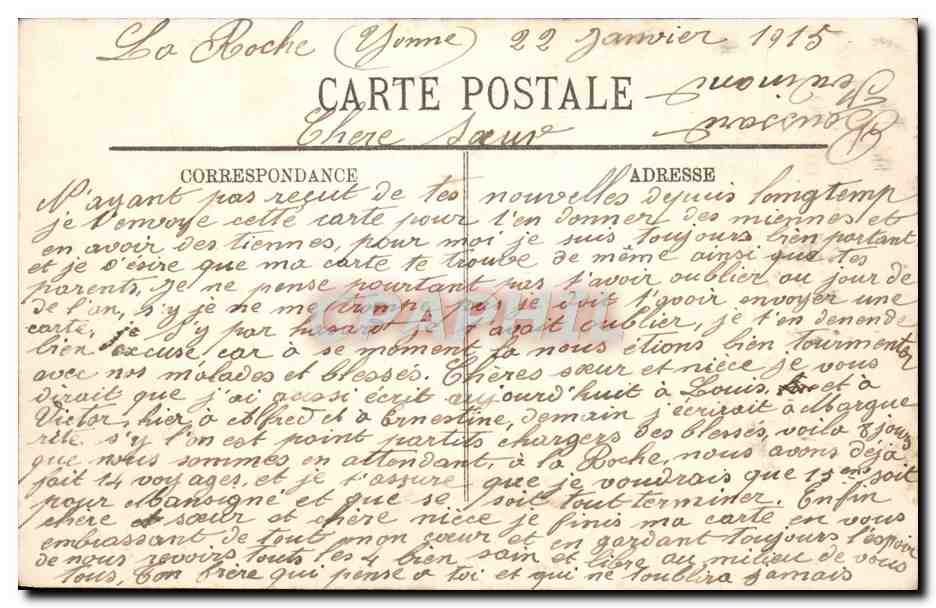 La Roche (Yonne) 22 Janvier 1915
CARTE POSTALE
Chere Sœur
CORRESPONDANCE
ADRESSE
N'ayant pas reçut de tes nouvelles depuis longtemp
je t'envoye cette carte pour t'en donner des miennes et
en avoir des tiennes, pour moi je suis toujours bien portant
et je désire que ma carte te trouve de même ainsi que tes
parents, Je ne pense pourtant pas t'avoir oublier au jour de
de l'an, s'y je ne me trompe pas je doit t'avoir envoyer une
carte, je s'y par hasard je t'avait oublier, je t'en demende
bien excuse car à se moment la nous étions bien tourmenter
avec nos malades et blessés. Chères sœur et nièce je vous
dirait que j'ai aussi écrit aujourd'huit à Louis, et à
Victor, hier à Alfred et à Ernestine, demain j'écrirait à Margue
rite, s'y l'on est point partis chargers des blessés, voila 8 jours
que nous sommes en attendant, à la Roche, nous avons déjà
fait 14 voyages, et je t'assure que je voudrais que 15ème soit
pour Mansigné et que se soit tout terminer. Enfin
chere sœur et chère nièce je finis ma carte en vous
embrassant de tout mon cœur et en gardant toujours l'espoir
de nous revoirs touts les 4 bien sain et libre au milieu de vous
tous, Ton frère qui pense a toi et qui ne t'oublira Jamais
CPAPHIL